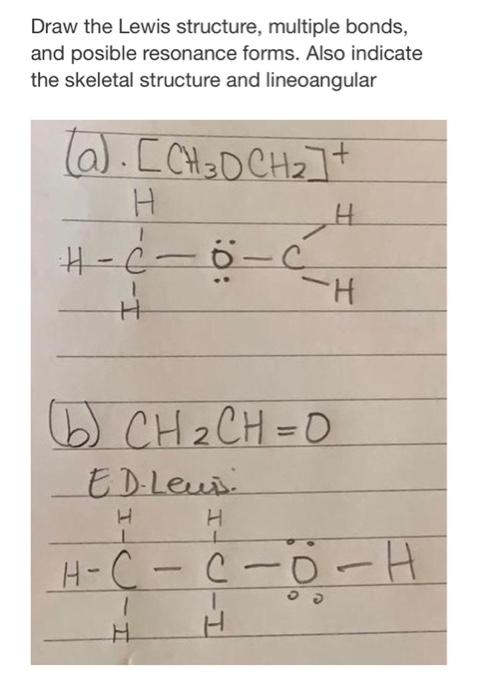 Draw the Lewis structure, multiple bonds,
and posible resonance forms. Also indicate
the skeletal structure and lineoangular
(a). [CH3OCH2]+
H H
H - C — Ö — C
H H
(b) CH2CH=O
E D-Lewis:
H H
H - C — C — Ö — H
H H